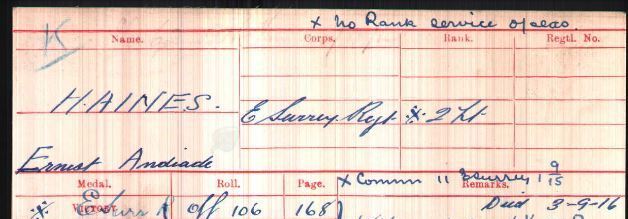 x No Rank service overseas.
Name. Corps. Rank. Regtl. No.
HAINES. E Surrey Regt x 2 Lt
Ernest Andiade
Medal. Roll. Page. x Comm 11 E Surrey 1 9/15
Remarks.
Victory E Surr R Off 106 168 Died 3-9-16